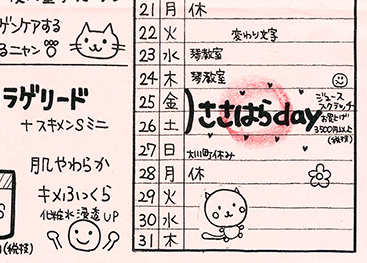 ゲンケアする
るニャン
ラゲリード
+スキメンSミニ
肌やわらか
キメふっくら
化粧水浸透UP
(税抜)
21 月 休
22 火 変わり文字
23 水 琴教室
24 木 琴教室
25 金
26 土
ささはらday
ジュース
スクラッチ
お買上げ
3500円以上
(税抜)
27 日 大川町休み
28 月 休
29 火
30 水
31 木